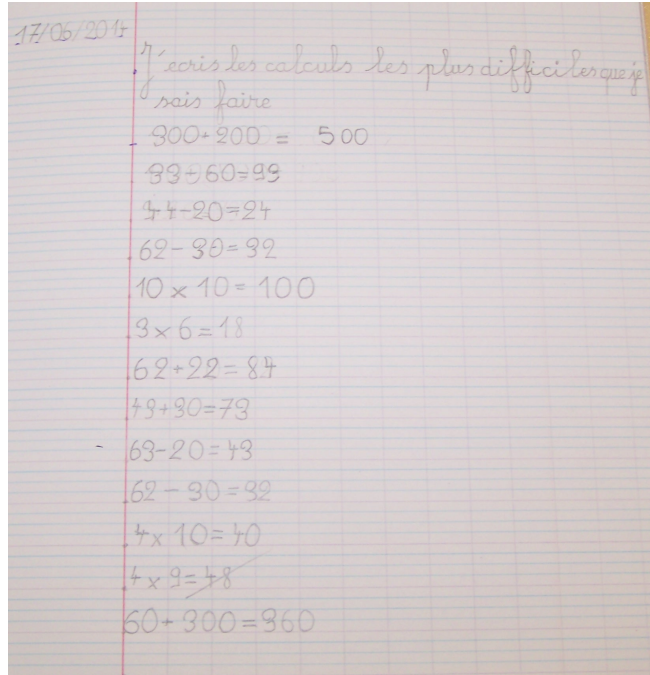 17/06/2015
J'écris les calculs les plus difficiles que je
sais faire
300+200 = 500
33+60=93
44-20=24
62-30=32
10 x 10=100
3 x 6=18
62+22=84
43+30=73
63-20=43
62-30=32
4 x 10=40
4 x 9=48
60+300=360